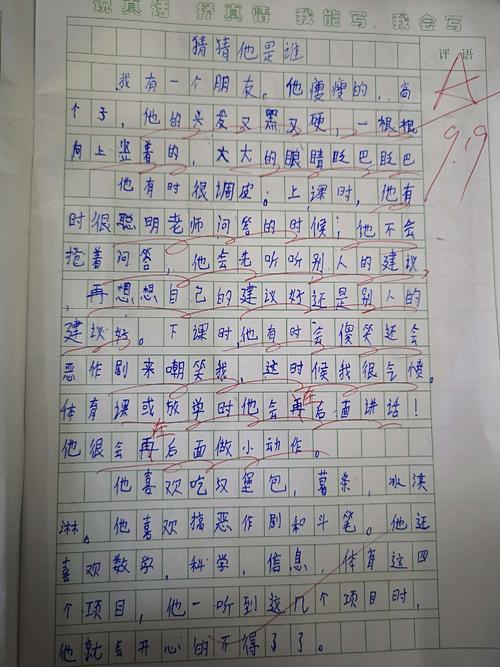 说真话 抒真情 我能写 我会写
评语
A
9.19
猜猜他是谁
我有一个朋友，他瘦瘦的，高
个子，他的头发又黑又硬，一根根
向上竖着的，大大的眼睛眨巴眨巴
他有时很调皮。上课时，他有
时很聪明老师问答的时候；他不会
抢着问答，他会先听听别人的建议
，再想想自己的建议好还是别人的
建议好。下课时，他有时会傻笑还会
恶作剧来嘲笑我，这时候我很气愤。
体育课或放学时他会再在后面讲话！
他很会再在后面做小动作。
他喜欢吃汉堡包，薯条，冰淇
淋。他喜欢搞恶作剧和斗笔。他还
喜欢数学，科学，信息，体育这四
个项目，他一听到这几个项目时，
他就会开心的不得了了。